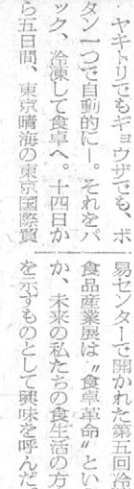 ・ヤキトリでもギョウザでも、ボ
タン一つで自動的に―。それをパ
ック、冷凍して食卓へ。十四日か
ら五日間、東京晴海の東京国際貿
易センターで開かれた第五回冷
食品産業展は〝食卓革命〟とい
か、未来の私たちの食生活の方
を示すものとして興味を呼んだ